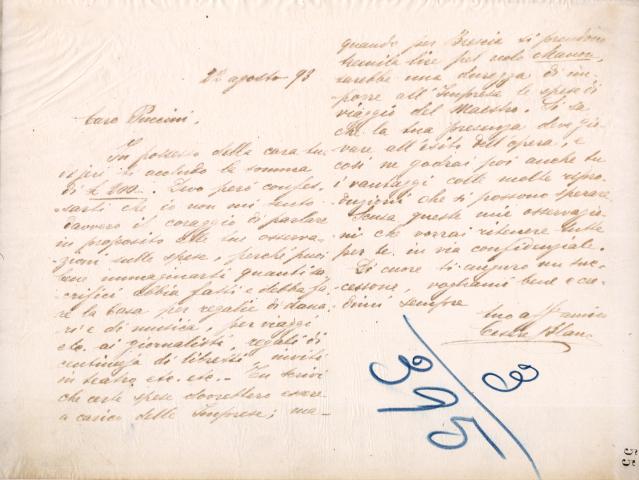 22 agosto 93
Caro Puccini,
In possesso della cara tua
ieri ti accludo la somma
di £ 200. Devo però confes-
sarti che io non mi sento
davvero il coraggio di parlare
in proposito alle tue osserva-
zioni sulle spese, perchè puoi
bene immaginarti quanti sa-
crifici abbia fatti e debba fa-
re la Casa per regalie di dana-
ri e di musica, per viaggi
etc. ai giornalisti, regali di
centinaja di libretti, inviti
in teatro, etc. etc. — Tu scrivi
che certe spese dovrettero essere
a carico delle Imprese; ma
quando per Brescia si prendono
lire pel nolo Manon,
sarebbe una durezza di im-
porre all'Impresa le spese di
viaggio del Maestro. Si sa
che la tua presenza deve gio-
vare all'esito dell'opera, e
così ne godrai poi anche tu
i vantaggi colle molte ripro-
duzioni che si possono sperare.
Scusa queste mie osservazio-
ni che vorrai ritenere tutte
per te, in via confidenziale.
Di cuore ti auguro un suc-
cessone, vogliami bene e cre-
dimi sempre
tuo aff amico
3/395
55